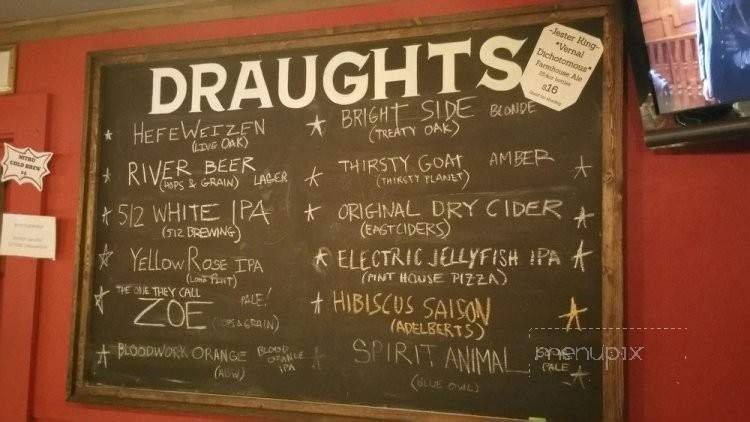 DRAUGHTS
-Jester King-
"Vernal
Dichotomous"
Farmhouse Ale
$16
HEFEWEIZEN
(LIVE OAK)
RIVER BEER
(HOPS & GRAIN) LAGER
512 WHITE IPA
(512 BREWING)
YELLOW ROSE IPA
(LONE PINT)
THE ONE THEY CALL
ZOE PALE!
(HOPS & GRAIN)
BLOODWORK ORANGE BLOOD
ORANGE
IPA
BRIGHT SIDE BLONDE
(TREATY OAK)
THIRSTY GOAT AMBER
(THIRSTY PLANET)
ORIGINAL DRY CIDER
(EASTCIDERS)
ELECTRIC JELLYFISH IPA
(PINT HOUSE PIZZA)
HIBISCUS SAISON
(ADELBERTS)
SPIRIT ANIMAL
PALE
(BLUE OWL)
NITRO
COLD BREW
menupix